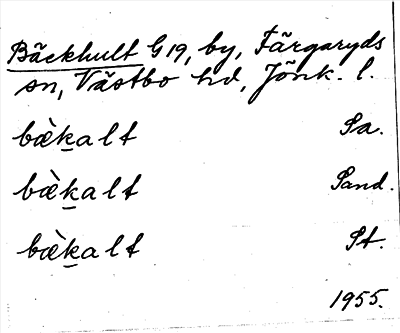 Bäckhult G19, by, Färgaryds
sn, Västbo hd, Jönk. l.
bæ̀k̲alt Sa.
bæ̀k̲alt Sand.
bæ̀k̲alt St.
1955.